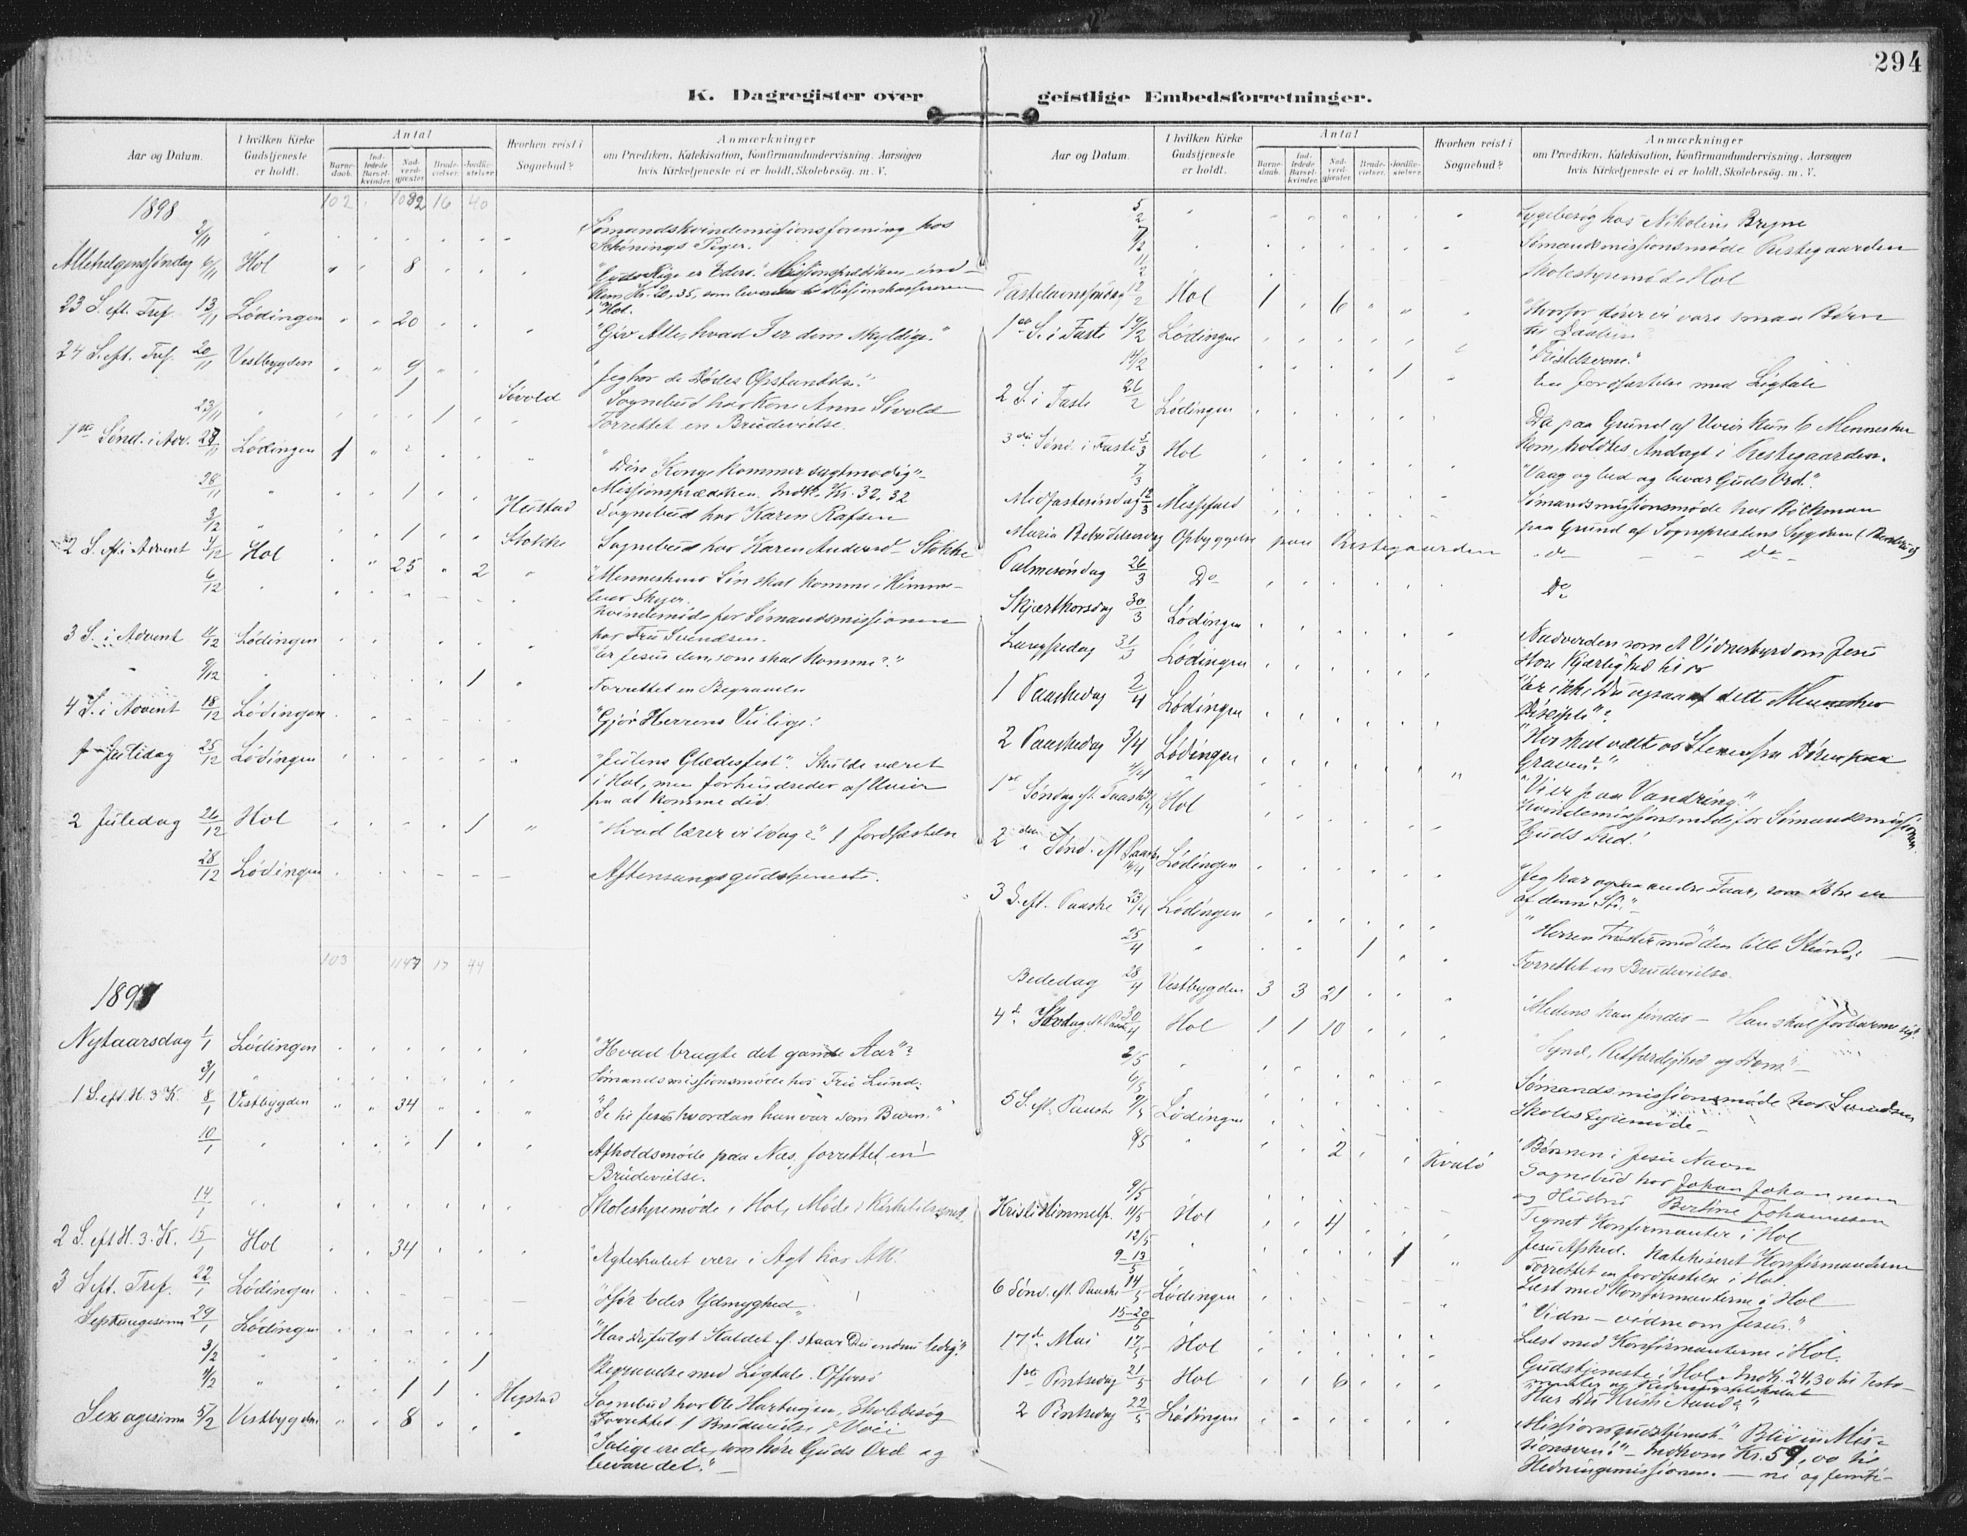 294
K. Dagregister over geistlige Embedsforretninger.
Aar og Datum.
I hvilken Kirke Gudstjeneste er holdt.
Antal
Barne-daab.
Ind-ledede Barsel-kvinder.
Nad-verd-gjester.
Brude-vielser.
Jordfæ-stelser.
Hvorhen reist i Sognebud?
Anmærkninger
om Prædiken, Katekisation, Konfirmandundervisning, Aarsagen
hvis Kirketjeneste ei er holdt, Skolebesøg m. V.
1898 102 1082 16 40
2/11 Sømandskvindemissionsforening hos
Schönings Piger.
Allehelgensøndag 6/11 Hol 8 "Guds Rige er Eders."
i Hol.
23 S. eft. Tref. 13/11 Lødingen 20 "Gjør Alle, hvad I er dem skyldige."
24 S. eft. Tref. 20/11 Vestbygden 9 "Jeg hør de Dødes Opstandelse."
1 Sivold Sognebud hos Kone Anne Sivold
23/11 1 Forrettet en Brudevielse.
1ste Sønd. i Adv. 27/11 Lødingen 1 "Din Konge kommer sagtmodig"
Missionsprædiken. Indk. Kr. 32,32
28/11 1 Hustad Sognebud hos Karen Rafsen
3/12 1 Stokke Sognebud hos Karen Andersd. Stokke
2 S. i Advent 4/12 Hol 25 2 "Menneskens Søn skal komme i Himme-
lens Skyer.
6/12 Kvindemøde for Sømandsmissionen
hos Fru Svendsen.
3 S. i Advent 11/12 Lødingen "Er Jesus den, som skal komme?"
9/12 1 Forrettet en Begravelse
4 S. i Advent 18/12 Lødingen "Gjør Herrens Vei lige!
1 Juledag 25/12 Lødingen "Julens Glædesfest". Skulde været
i Hol, men forhindredes af Uveir
fra at komme did.
2 Juledag 26/12 Hol 1 "Hvad lærer vi idag?" 1 Jordfæstelse
28/12 Lødingen Aftensangsgudstjeneste.
103 1147 17 44
Nytaarsdag 1/1 Lødingen "Hvad bragte det gamle Aar"?
3/1 Sømandsmissionsmøde hos Frue Lund.
1 S. eft. H. 3 K. 8/1 Vestbygden 34 "Se til Jesus hvordan han var som Barn."
10/1 1 Afholdsmøde paa Næs, forrettet en
Brudevielse.
14/1 Skolestyremøde i Hol, Møde i Kirketilsynet.
2 S. eft H. 3. K. 15/1 Hol 34 "Ægteskabet være i Agt hos Alle
3 S. eft. Tref. 22/1 Lødingen "Ifør Eder Ydmyghed"
Septuagesima 29/1 Lødingen "Har Du fulgt Kaldet el. staar Du endnu ledig?"
3/2 1 Begravelse med Ligtale. Offersø
4/2 1 1 Hegstad Sognebud hos Ole Hartvigsen, Skolebesøg
Forrettet 1 Brudevielse i Voie
Sexagesima 5/2 Vestbygden 8 "Salige er de, som høre Guds Ord og
bevare det."
Aar og Datum.
I hvilken Kirke Gudstjeneste er holdt.
Antal
Barne-daab.
Ind-ledede Barsel-kvinder.
Nad-verd-gjester.
Brude-vielser.
Jordfæ-stelser.
Hvorhen reist i Sognebud?
Anmærkninger
om Prædiken, Katekisation, Konfirmandundervisning, Aarsagen
hvis Kirketjeneste ei er holdt, Skolebesøg m. V.
5/2 Sygebesøg hos Nikoline Bryne
7/2 Sømandsmissionsmøde Prestegaarden
11/2 Skolestyremøde Hol
Fastelavnssøndag 12/2 Hol 1 6 "Hvorfor fører vi vore smaa Børn
til Daaben"
1ste S. i Faste 19/2 Lødingen "Fristelserne."
14/2 1 En Jordfæstelse med Ligtale
2 S. i Faste 26/2 Lødingen Da paa Grund af Uveir kun 6 Mennesker
kom, holdtes Andagt i Prestegaarden.
3die Sønd. i Faste 5/3 Hol "Vaag og bed og bevar Guds Ord."
7/3 Sømandsmissionsmøde hos Röckman
Midfastesøndag 12/3 Messefald paa Grund af Sogneprestens Sygdom
Maria Bebudelsesdag Opbyggelse paa Prestegaarden do do
Palmesøndag 26/3 Do Do
Skjærthorsdag 30/3 Lødingen Nadverden som et Vidnesbyrd om Jesu
store Kjærlighed til os
Langfredag 31/3 Lødingen "Er ikke Du ogsaa af dette Menneskes
Disciple"?
1 Paaskedag 2/4 Lødingen "Hvo skal vælte os Stenen fra Døren paa
Graven?"
2 Paaskedag 3/4 Lødingen "Vi er paa Vandring."
4/4 Kvindemissionsmøde for Sømandsmissionen.
1ste Søndag eft. Paaske 9/4 Hol "Guds Fred!
2den Sønd. eft. Paaske 16/4 Lødingen "Jeg har ogsaa andre Faar, som ikke er
af denne Sti."
3 S. eft. Paaske 23/4 Lødingen "Herren trøster med den lille Stund.
25/4 1 Forrettet en Brudevielse.
Bededag 28/4 Vestbygden 3 3 21 "Medens han findes – Han skal forbarme sig".
4de Søndag eft. Paaske 30/4 Hol 1 1 10 "Synd, Retfærdighed og Dom"
2/5 Sømandsmissionsmøde hos Svendsen
6/5 Skolestyremøde
5 S. eft. Paaske 7/5 Lødingen "Bønnen i Jesu Navn
8/5 2 Kvalø Sognebud hos Johan Johannesen
og Hustru Bertine Johannesen
9/5 Tegnet Konfirmanter i Hol
Kristi Himmelf. 11/5 Hol 4 Jesu Afsked. Katekiseret Konfirmanterne
12/5 1 Forrettet en Jordfæstelse i Hol.
9–13/5 Læst med Konfirmanterne i Hol
6 Sønd. eft. Paaske 14/5 Lødingen "Vidne – vidne om Jesus."
15–20/5 Læst med Konfirmanterne i Hol.
17de Mai 17/5 Hol Gudstjeneste i Hol. Indk. 24,30 til Testa-
menter
1ste Pintsedag 21/5 Hol 6 "Har Du Kristi Aand?"
2 Pintsedag 22/5 Lødingen Missionsgudstjeneste. "Bliv en Mis-
sionsven!" – Indkom Kr. 59,00 til
Hedningemissionen. – ni og femti–